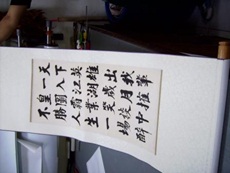 天下英雄出我輩
一入江湖歲月催
皇圖霸業笑談中
不勝人生一場醉